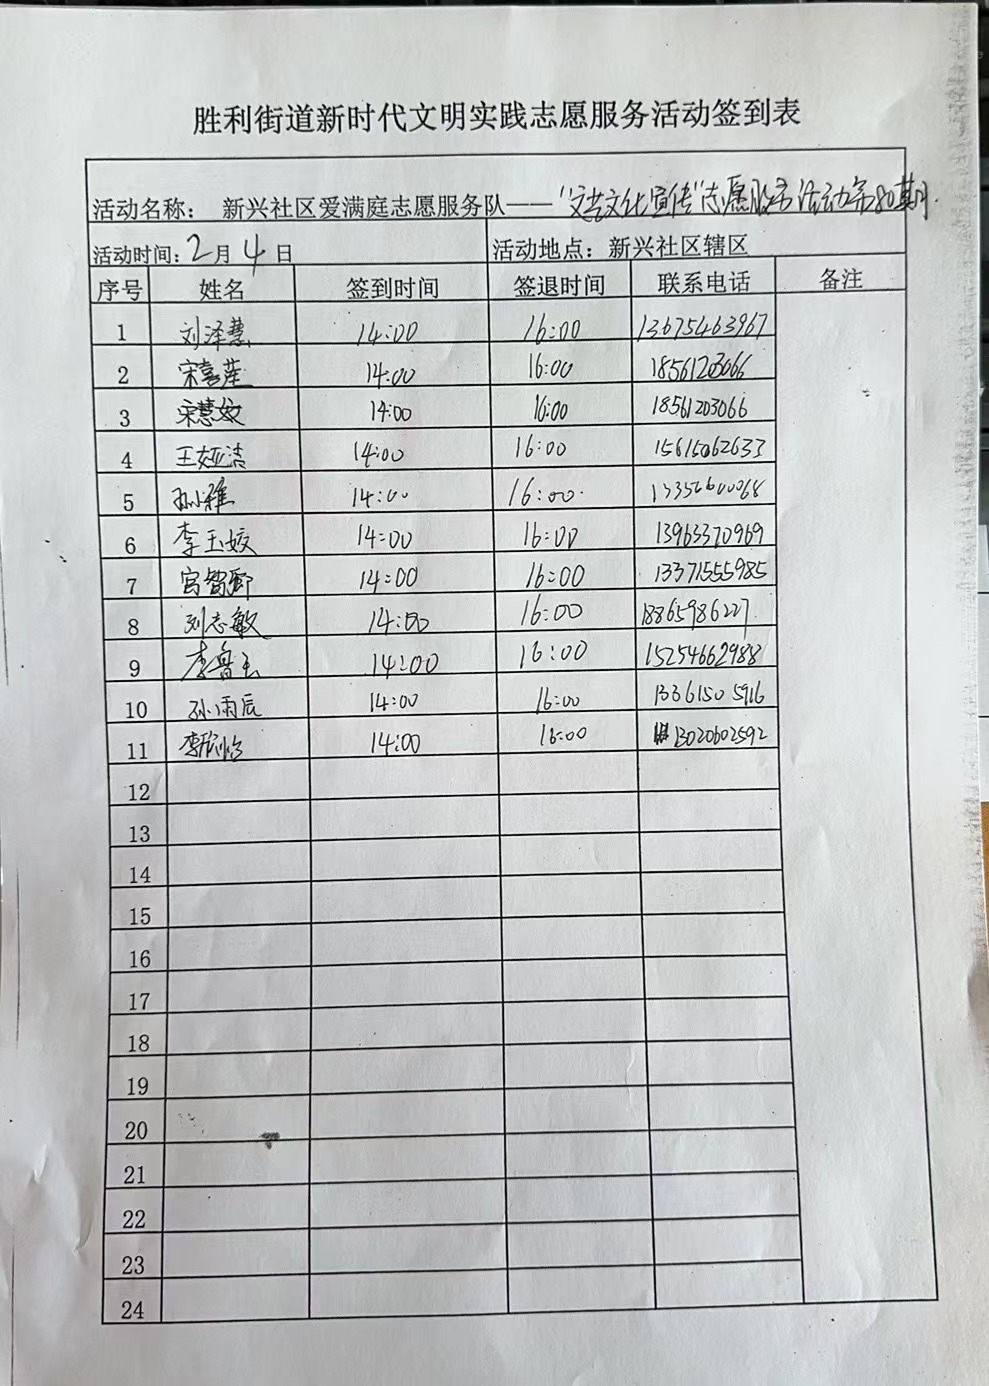 胜利街道新时代文明实践志愿服务活动签到表
活动名称： 新兴社区爱满庭志愿服务队——“文艺文化宣传”志愿服务活动第80期
活动时间：2月4日 活动地点：新兴社区辖区
序号 姓名 签到时间 签退时间 联系电话 备注
1 刘泽慧 14:00 16:00 13675463967
2 宋喜莲 14:00 16:00 18561203066
3 宋慧敏 14:00 16:00 18561203066
4 王娅洁 14:00 16:00 15615062633
5 孙雅 14:00 16:00
6 李玉姣 14:00 16:00 13963370969
7 宫智 14:00 16:00 13371555985
8 刘志敏 14:00 16:00 18865986227
9 李鲁玉 14:00 16:00 15254662988
10 孙雨辰 14:00 16:00 13361505916
11 李欣怡 14:00 16:00 13020602592
12
13
14
15
16
17
18
19
20
21
22
23
24